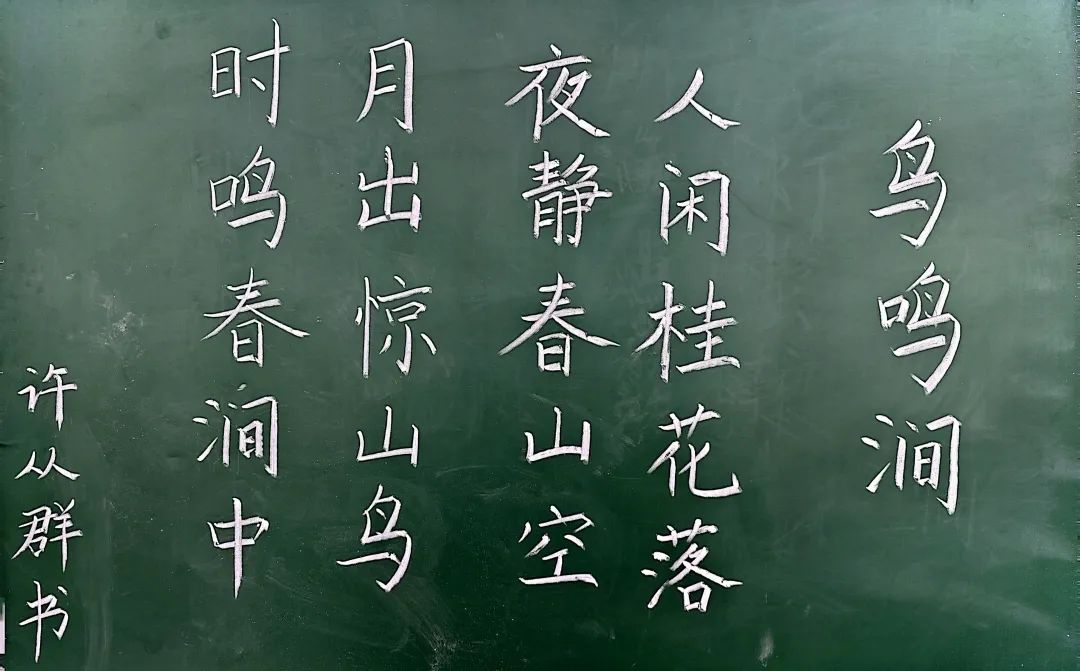 鸟鸣涧
人闲桂花落
夜静春山空
月出惊山鸟
时鸣春涧中
许从群书